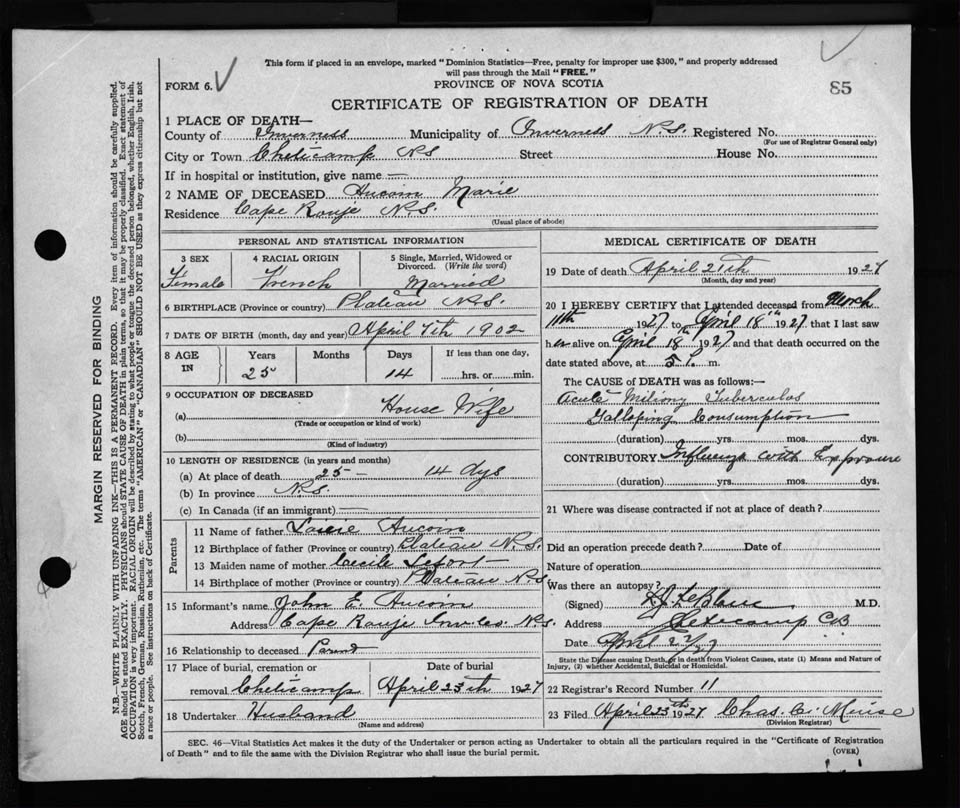 This form if placed in an envelope, marked "Dominion Statistics—Free, penalty for improper use $300," and properly addressed
will pass through the Mail "FREE."
FORM 6.
PROVINCE OF NOVA SCOTIA
85
CERTIFICATE OF REGISTRATION OF DEATH
1 PLACE OF DEATH—
County of Inverness Municipality of Inverness N.S. Registered No.
(For use of Registrar General only)
City or Town Cheticamp NS Street House No.
If in hospital or institution, give name —
2 NAME OF DECEASED Aucoin Marie
Residence Cape Rouje N.S.
(Usual place of abode)
PERSONAL AND STATISTICAL INFORMATION
3 SEX 4 RACIAL ORIGIN 5 Single, Married, Widowed or
Divorced. (Write the word)
Female French Married
6 BIRTHPLACE (Province or country) Plateau N.S.
7 DATE OF BIRTH (month, day and year) April 7th 1902
8 AGE IN Years Months Days If less than one day,
25 14 hrs. or min.
9 OCCUPATION OF DECEASED
(a) House Wife
(Trade or occupation or kind of work)
(b)
(Kind of industry)
10 LENGTH OF RESIDENCE (in years and months)
(a) At place of death 25 – 14 dys
(b) In province N.S.
(c) In Canada (if an immigrant) —
Parents
11 Name of father Aucoin
12 Birthplace of father (Province or country) Plateau N.S.
13 Maiden name of mother Cecile Lefort
14 Birthplace of mother (Province or country) Plateau N.S.
15 Informant's name John E. Aucoin
Address Cape Rouje N.S.
16 Relationship to deceased
17 Place of burial, cremation or Date of burial
removal Cheticamp April 23th 1927
18 Undertaker Husband
(Name and address)
MEDICAL CERTIFICATE OF DEATH
19 Date of death April 21th 1927
(Month, day and year)
20 I HEREBY CERTIFY that I attended deceased from March
11th 1927 to April 18th 1927 that I last saw
her alive on April 18 1927 and that death occurred on the
date stated above, at 5 P. m.
The CAUSE OF DEATH was as follows:—
Acute Miliony Tuberculos
Galloping Consumption
(duration) yrs. mos. dys.
CONTRIBUTORY Influenza with Exposure
(duration) yrs. mos. dys.
21 Where was disease contracted if not at place of death?
Did an operation precede death? Date of
Nature of operation
Was there an autopsy?
(Signed) M.D.
Address Cheticamp CB
Date April 22/27
State the Disease causing Death, or in death from Violent Causes, state (1) Means and Nature of
Injury, (2) whether Accidental, Suicidal or Homicidal.
22 Registrar's Record Number 11
23 Filed April 23th 1927 Chas. W. Meuse
(Division Registrar)
SEC. 46—Vital Statistics Act makes it the duty of the Undertaker or person acting as Undertaker to obtain all the particulars required in the "Certificate of Registration
of Death" and to file the same with the Division Registrar who shall issue the burial permit.
(OVER)
MARGIN RESERVED FOR BINDING
N.B.—WRITE PLAINLY WITH UNFADING INK—THIS IS A PERMANENT RECORD. Every item of information should be carefully supplied.
AGE should be stated EXACTLY. PHYSICIANS should STATE CAUSE OF DEATH in plain terms, so that it may be properly classified. Exact statement of
OCCUPATION is very important. RACIAL ORIGIN will be described by stating to what people or tongue the deceased person belonged, whether English, Irish,
Scotch, French, German, Russian, Ruthenian, etc. The terms "AMERICAN" or "CANADIAN" SHOULD NOT BE USED as they express citizenship but not
a race or people. See instructions on back of Certificate.